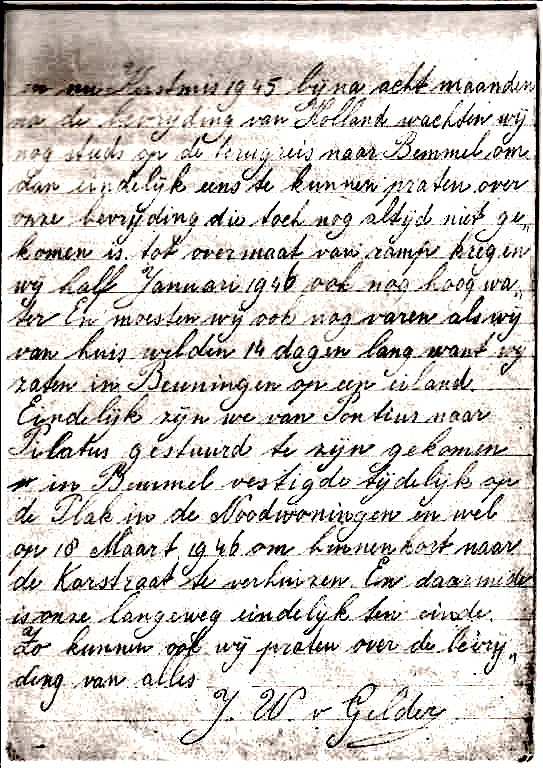 en nu Kerstmis 1945 bijna acht maanden
na de bevrijding van Holland wachten wij
nog steds op de terugreis naar Bemmel om
dan eindelijk eens te kunnen praten over
onze bevrijding die toch nog altijd niet ge„
komen is. tot overmaat van ramp kregen
wij half Januari 1946 ook nog hoog wa„
ter En moesten wij ook nog varen als wij
van huis wilden 14 dagen lang want wij
zaten in Beuningen op een eiland
Eindelijk zijn we van Pontius naar
Pilatus gestuurd te zijn gekomen
in Bemmel vestigde tijdelijk op
de Plak in de Noodwoningen en wel
op 18 Maart 1946 om binnenkort naar
de Karstraat te verhuizen. En daarmede
is onze langeweg eindelijk ten einde.
Zo kunnen ook wij praten over de bevrij„
ding van alles
J. W. v Gelder